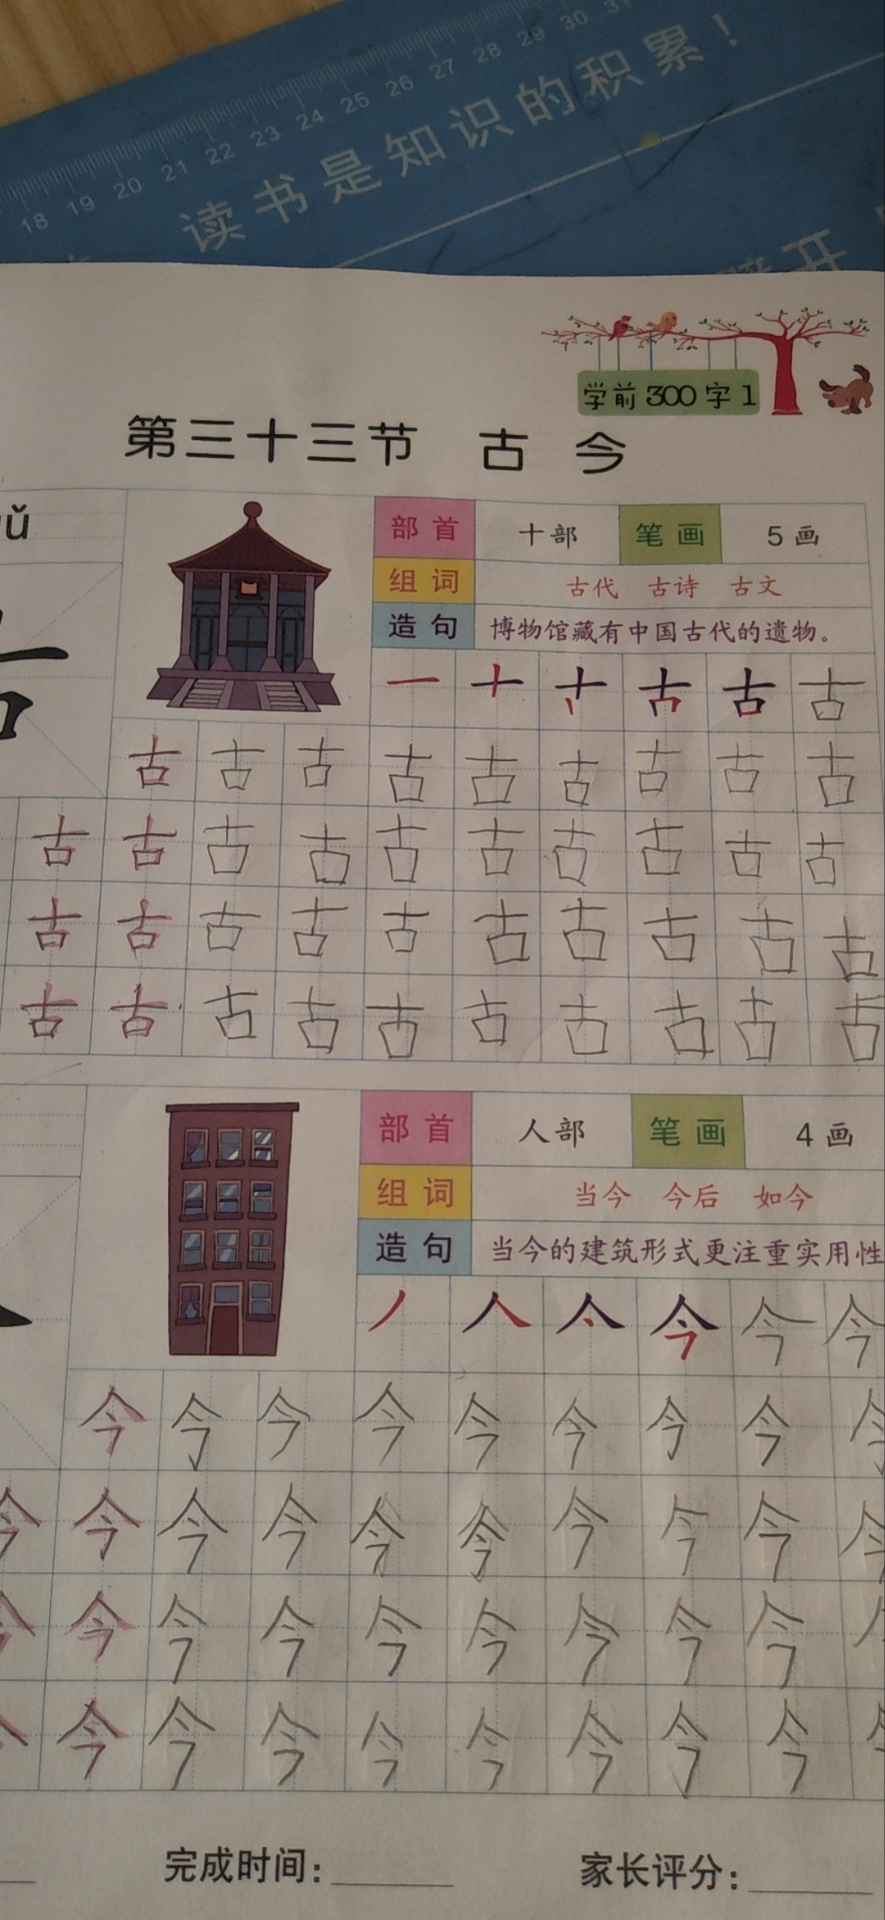 18 19 20 21 22 23 24 25 26 27 28 29 30 31
读书是知识的积累！
开
学前300字1
第三十三节 古 今
ǔ
部首 十部 笔画 5画
组词 古代 古诗 古文
造句 博物馆藏有中国古代的遗物。
古 古
古 古 古 古 古 古 古 古 古
古 古 古 古 古 古 古 古 古 古
古 古 古 古 古 古 古 古 古 古
古 古 古 古 古 古 古 古 古 古
部首 人部 笔画 4画
组词 当今 今后 如今
造句 当今的建筑形式更注重实用性
今 今 今
今 今 今 今 今 今 今 今 今
今 今 今 今 今 今 今 今 今 今
今 今 今 今 今 今 今 今 今
今 今 今 今 今 今 今 今
完成时间：
家长评分：